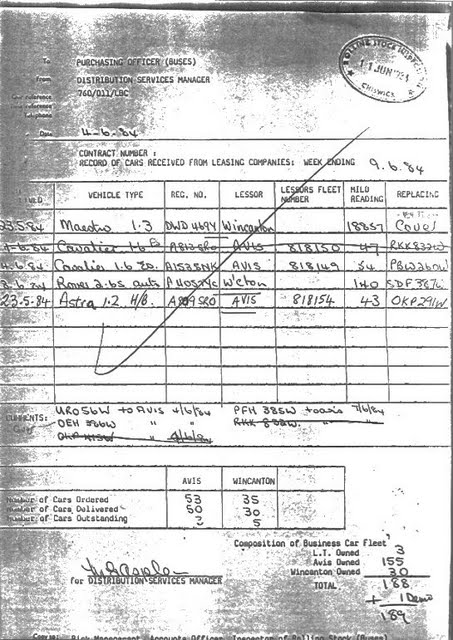 To PURCHASING OFFICER (BUSES)
From DISTRIBUTION SERVICES MANAGER
760/D11/LBC
ROLLING STOCK
11 JUN
CHISWICK
Date 4-6-84
CONTRACT NUMBER :
RECORD OF CARS RECEIVED FROM LEASING COMPANIES: WEEK ENDING 9.6.84
VEHICLE TYPE REG. NO. LESSOR LESSORS FLEET NUMBER MILO READING REPLACING
23.5.84 Maestro 1.3 Wincanton 18857 Cover
Cavalier AVIS 818150 47 RKK832W
4.6.84 Cavalier 1.6 AVIS 818149 54 PBW260W
auto W'cton 140
23.5.84 Astra 1.2 H/B. A809 SRO AVIS 818154 43 OKP291W
COMMENTS: URO56W to AVIS 4/6/84 PFH 385W to avis 7/6/84
OEH 386W " " RKK 832W. " "
" 4/6/84
AVIS WINCANTON
Number of Cars Ordered 53 35
Number of Cars Delivered 50 30
Number of Cars Outstanding 3 5
Composition of Business Car Fleet
L.T. Owned 3
Avis Owned 155
Wincanton Owned 30
TOTAL 188
+ 1 Demo
189
for DISTRIBUTION SERVICES MANAGER
Copy: Risk Management, Accounts Officer, Inspector of Rolling Stock (Buses)